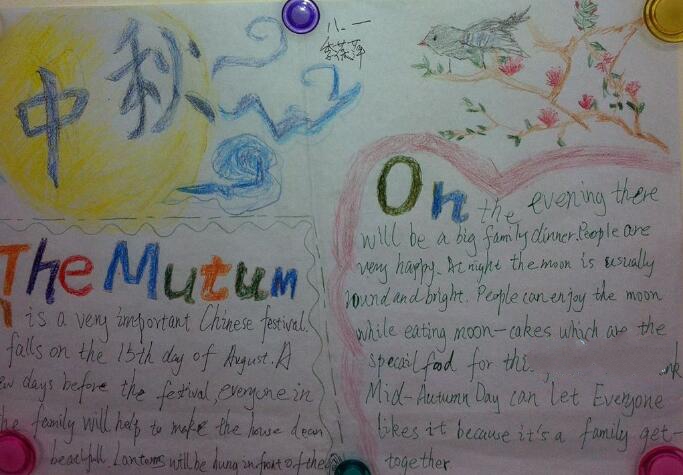 中秋
八.一
The Mutum
is a very important Chinese festival.
falls on the 15th day of August. A
days before the festival, everyone in
the family will help to make the house clean
beautifull. Lanterns will be hung infront of the
On the evening there
will be a big family dinner. People are
very happy. At night the moon is usually
round and bright. People can enjoy the moon
while eating moon-cakes which are the
specail food for thi.
Mid-Autumn Day can let Everyone
likes it because it's a family get-
together